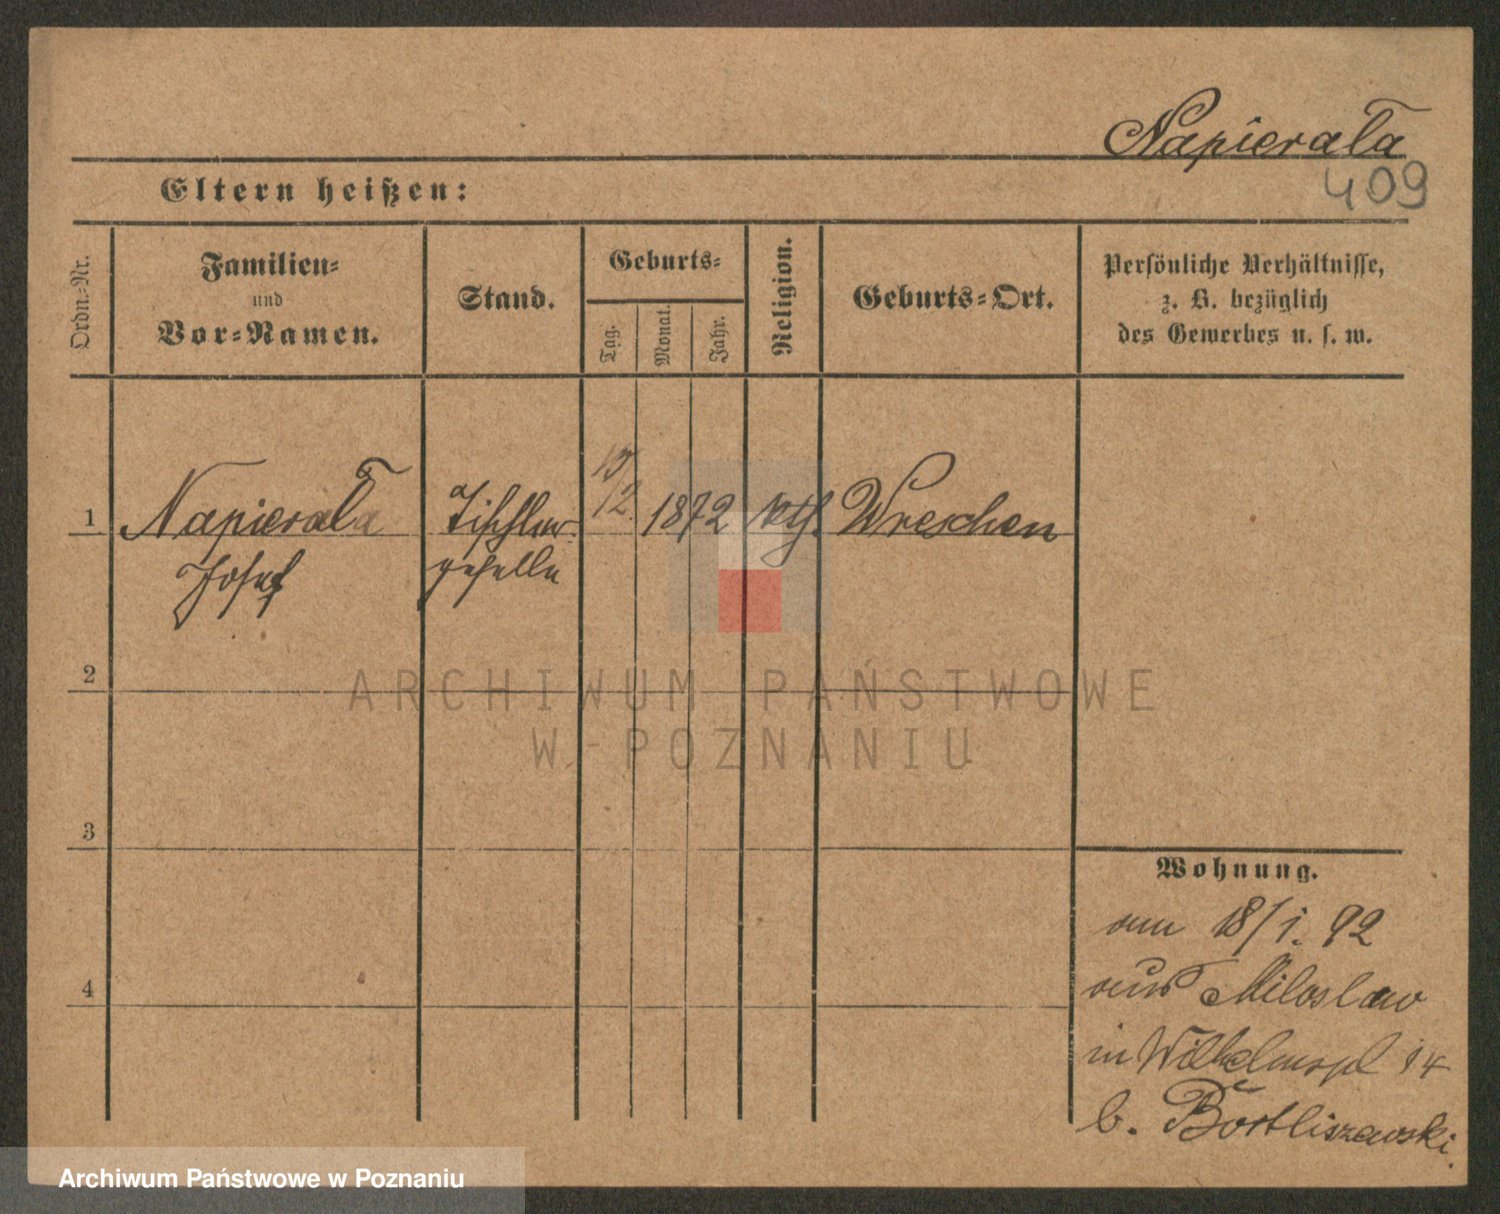 Napierała
409
Eltern heißen:
Ordn.-Nr.
Familien-
und
Vor-Namen.
Stand.
Geburts-
Tag.
Monat.
Jahr.
Religion.
Geburts-Ort.
Persönliche Verhältnisse,
z. B. bezüglich
des Gewerbes u. s. w.
1
Napierała
Josef
Tischler
geselle
12
1872
kth.
Wreschen
2
ARCHIWUM PAŃSTWOWE
W POZNANIU
3
Wohnung.
am 18/1. 92
aus Miloslaw
in Wilhelmspl 14
b.
4
Archiwum Państwowe w Poznaniu